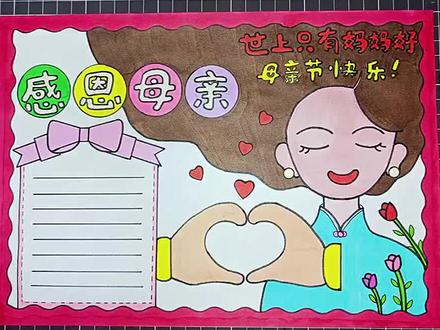 世上只有妈妈好
母亲节快乐！
感恩母亲